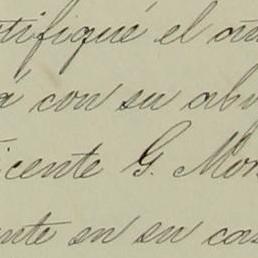 tifiqué el an
á con su abu
icente G. Mon
nte en su cas